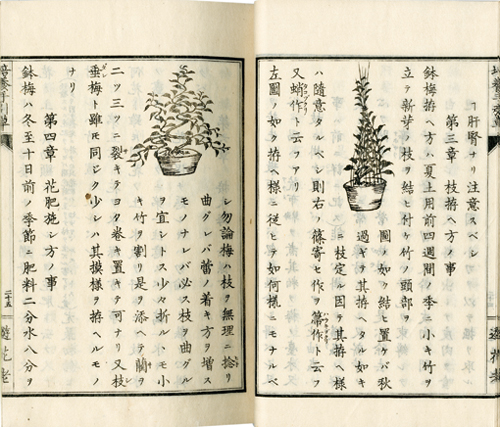 ヿ肝腎ナリ注意スベシ
第三章 枝拵ヘ方ノ事
鉢梅拵ヘ方ハ夏土用前四週間ノ季ニ小キ竹ヲ
立テ新芽ノ枝ヲ結ヒ付ケ竹ノ頭部ヲ
圖ノ如ク結ヒ置ケバ秋
過ギ其拵ヘタル如キ
ニ枝定ル因テ其拵ヘ様
ハ随意タルベシ則右ノ篠寄セ作ヲ箒作ト云フ
又蛸作ト云フアリ
左圖ノ如ク拵ヘ様ニ従ヒテ如何様ニモナルベ
シ勿論梅ハ枝ヲ無理ニ捻リ
曲グレバ蕾ノ着キ方ヲ増ス
モノナレバ必ス枝ヲ曲グル
ヲ宜シトス少々折ルヽモ小
キ竹ヲ割リ是ヲ添ヘテ藺ヲ
二ツ三ツニ裂キテヨク巻キ置キテ可ナリ又枝
垂梅ト雖モ同ジク少レハ其摸様ヲ拵ヘルモノ
ナリ
第四章 花肥施シ方ノ事
鉢梅ハ冬至十日前ノ季節ニ肥料二分水八分ヲ
二十五